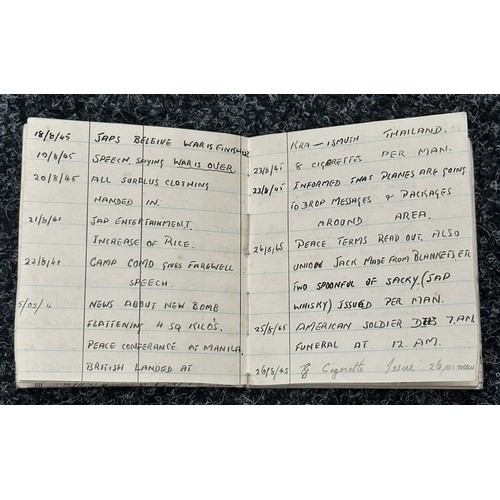 18/8/45 JAPS BELEIVE WAR IS FINISHED
19/8/45 SPEECH, SAYING WAR IS OVER.
20/8/45 ALL SURPLUS CLOTHING
HANDED IN.
21/8/41 JAP ENTERTAINMENT.
INCREASE OF RICE.
22/8/41 CAMP COM'D GIVES FAREWELL
SPEECH.
NEWS ABOUT NEW BOMB
FLATTENING 4 SQ KILO'S.
PEACE CONFERANCE AT MANILA.
BRITISH LANDED AT
KRA - ISMUTH THAILAND.
23/8/45 8 CIGARETTES PER MAN.
23/8/45 INFORMED THAT PLANES ARE GOING
TO DROP MESSAGES & PACKAGES
AROUND AREA.
24/8/45 PEACE TERMS READ OUT. ALSO
UNION JACK MADE FROM BLANKETS ER
TWO SPOONFUL OF SACKY. (JAP
WHISKY) ISSUED PER MAN.
25/8/45 AMERICAN SOLDIER DIES 7. AM
FUNERAL AT 12. AM.
26/8/45 Cigerette Issue 26 per man.